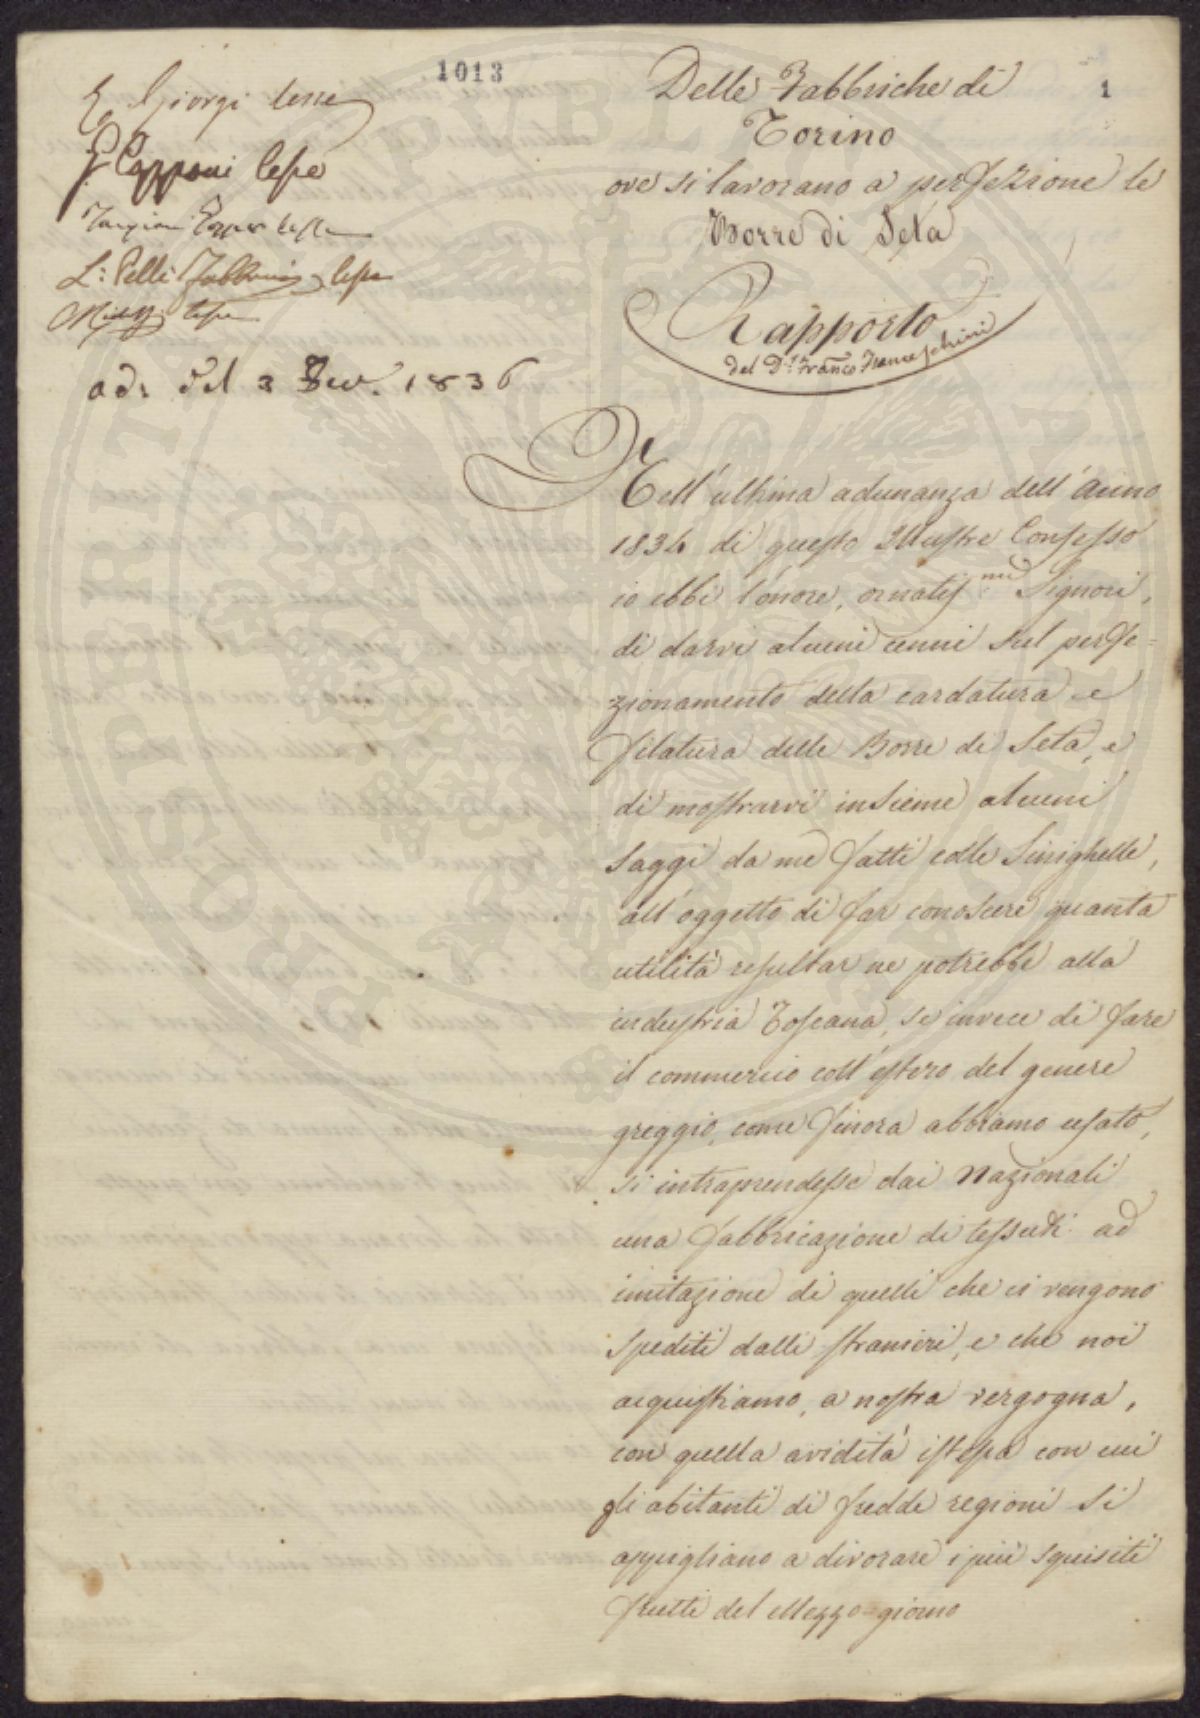 1013
1
E. Giorgi lesse
G Capponi lesse
Targioni Tozzetti lesse
L: Pelli Fabbroni lesse
lesse
ad: del 3 1836
Delle Fabbriche di
Torino
ove si lavorano a perfezione le
Borre di Seta
Rapporto
del D.r Franco Franceschini
Nell'ultima adunanza dell'Anno
1834 di questo Illustre Consesso
io ebbi l'onore, ornatiss.mi Signori,
di darvi alcuni cenni sul perfe=
zionamento della cardatura e
filatura delle Borre di Seta, e
di mostrarvi insieme alcuni
saggi da me fatti colle Sinighelle,
all'oggetto di far conoscere quanta
utilità resultar ne potrebbe alla
industria Toscana, se invece di fare
il commercio coll'estero del genere
greggio, come finora abbiamo usato,
si intraprendesse dai Nazionali
una fabbricazione di tessuti ad
imitazione di quelli che ci vengono
spediti dalli stranieri, e che noi
acquistiamo, a nostra vergogna,
con quella avidità istessa con cui
gli abitanti di fredde regioni si
appigliano a divorare i più squisiti
frutti del Mezzo=giorno